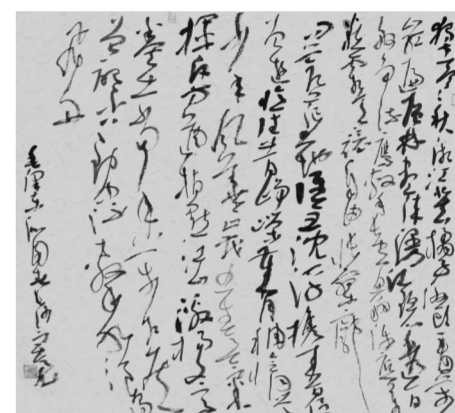 独立寒秋湘江北去橘子洲头看万山
红遍层林尽染漫江碧透百舸
争流鹰击长空鱼翔浅底万类
霜天竞自由怅寥廓
问苍茫大地谁主沉浮携来百侣
曾游忆往昔峥嵘岁月稠恰同学
少年风华正茂书生意气
挥斥方遒指点江山激扬文字
粪土当年万户侯
曾记否到中流击水浪遏
飞舟
毛泽东沁园春长沙